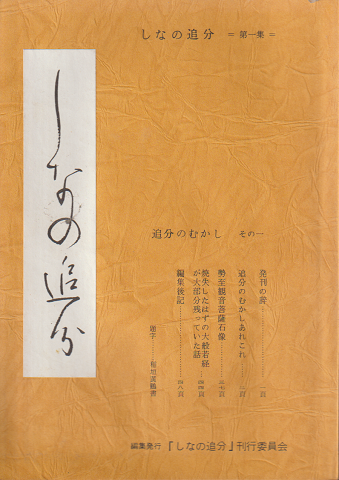 しなの追分 =第一集=
しなの追分
追分のむかし その一
発刊の辞…………一頁
追分のむかしあれこれ………二頁
勢至観音菩薩石像………三七頁
焼失したはずの大般若経
が大部分残っていた話………四四頁
編集後記…………四八頁
題字………稲垣
編集発行 『しなの追分』刊行委員会